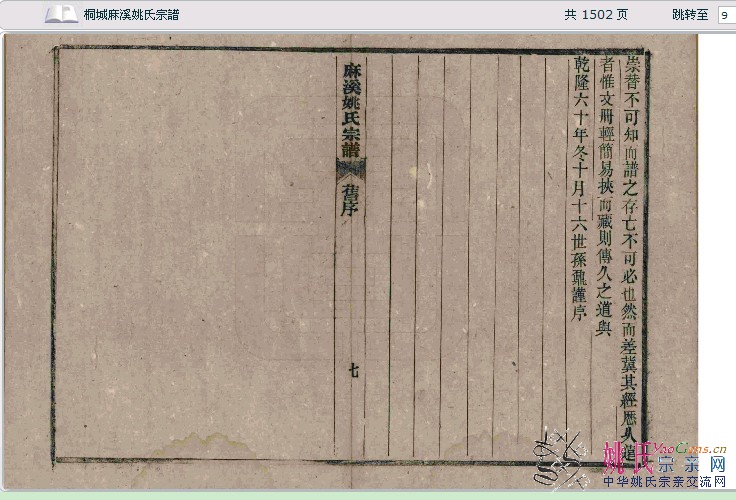 桐城麻溪姚氏宗譜
共 1502 页
跳转至
9
崇替不可知而譜之存亡不可必也然而差冀其經歷久遠
者惟文冊輕簡易挾而藏則傳久之道與
乾隆六十年冬十月十六世孫鼐謹序
麻溪姚氏宗譜
舊序
七
姚氏宗亲网
YaoGens.cn
中华姚氏宗亲交流网